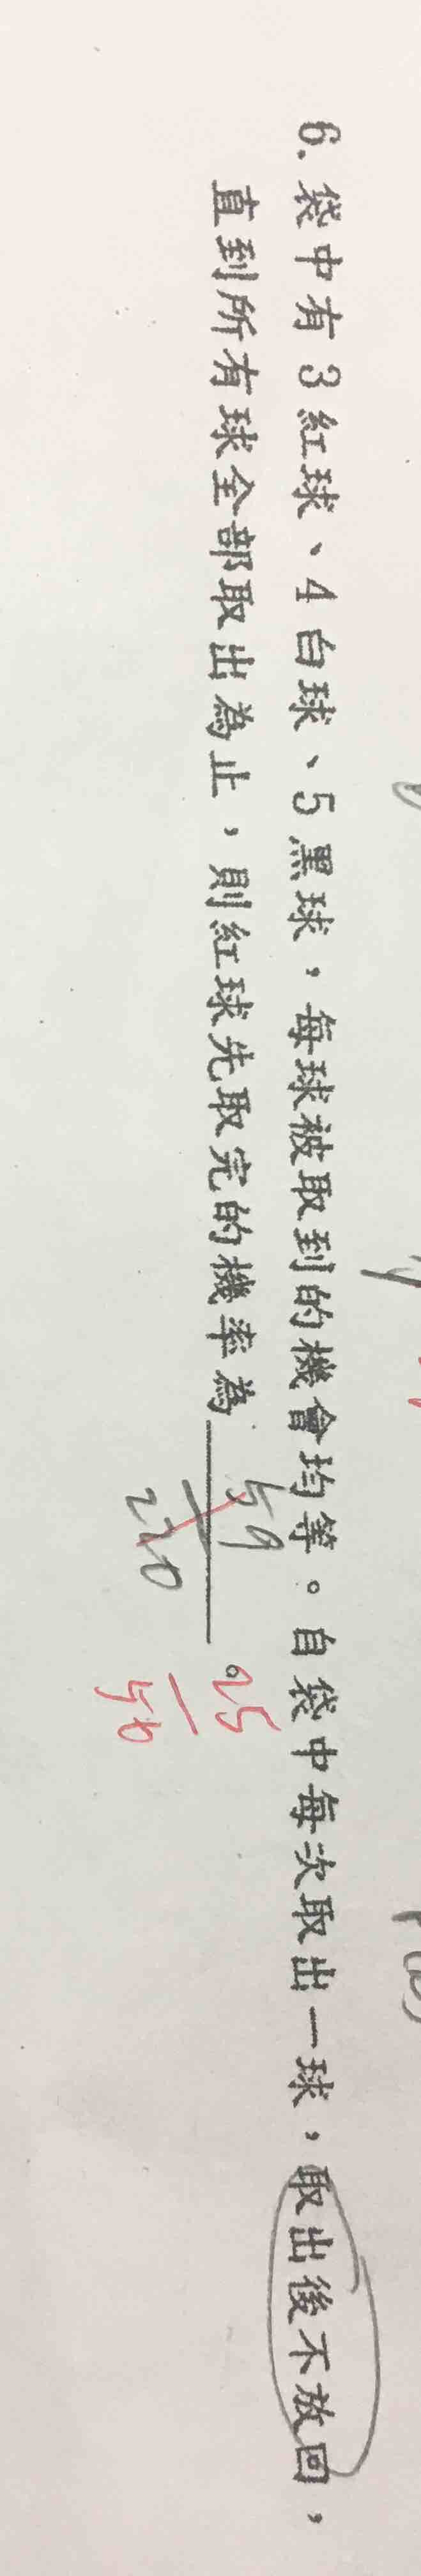 6. 袋中有 3 紅球、4 白球、5 黑球，每球被取到的機會均等。自袋中每次取出一球，取出後不放回，
直到所有球全部取出為止，則紅球先取完的機率為 59/220 。